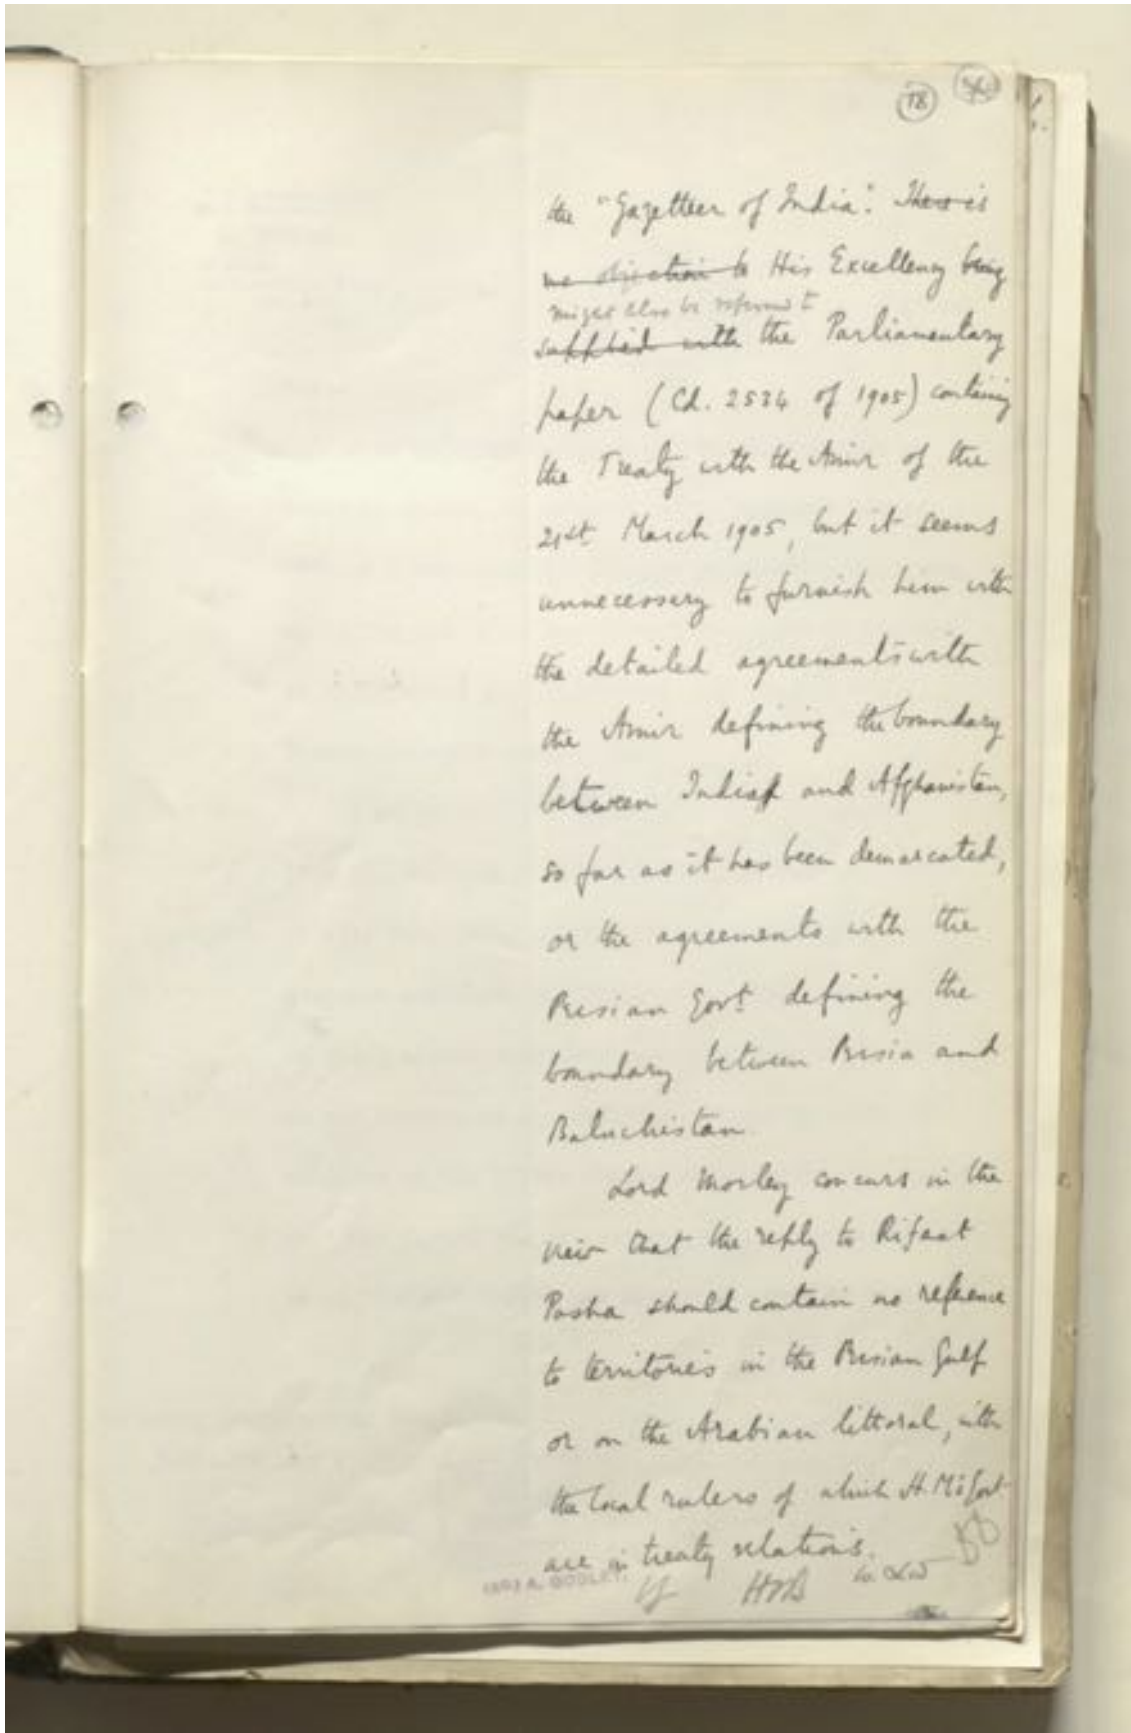 78
the "Gazetteer of India". There is
no objection to His Excellency being
might also be referred to
supplied with the Parliamentary
paper (Cd. 2534 of 1905) containing
the Treaty with the Amir of the
21st March 1905, but it seems
unnecessary to furnish him with
the detailed agreements with
the Amir defining the boundary
between India and Afghanistan,
so far as it has been demarcated,
or the agreements with the
Persian Govt defining the
boundary between Persia and
Baluchistan.
Lord Morley concurs in the
view that the reply to Rifaat
Pasha should contain no reference
to territories in the Persian Gulf
or on the Arabian littoral, with
the local rulers of which H.M's Govt
are in treaty relations.
A. GODLEY.